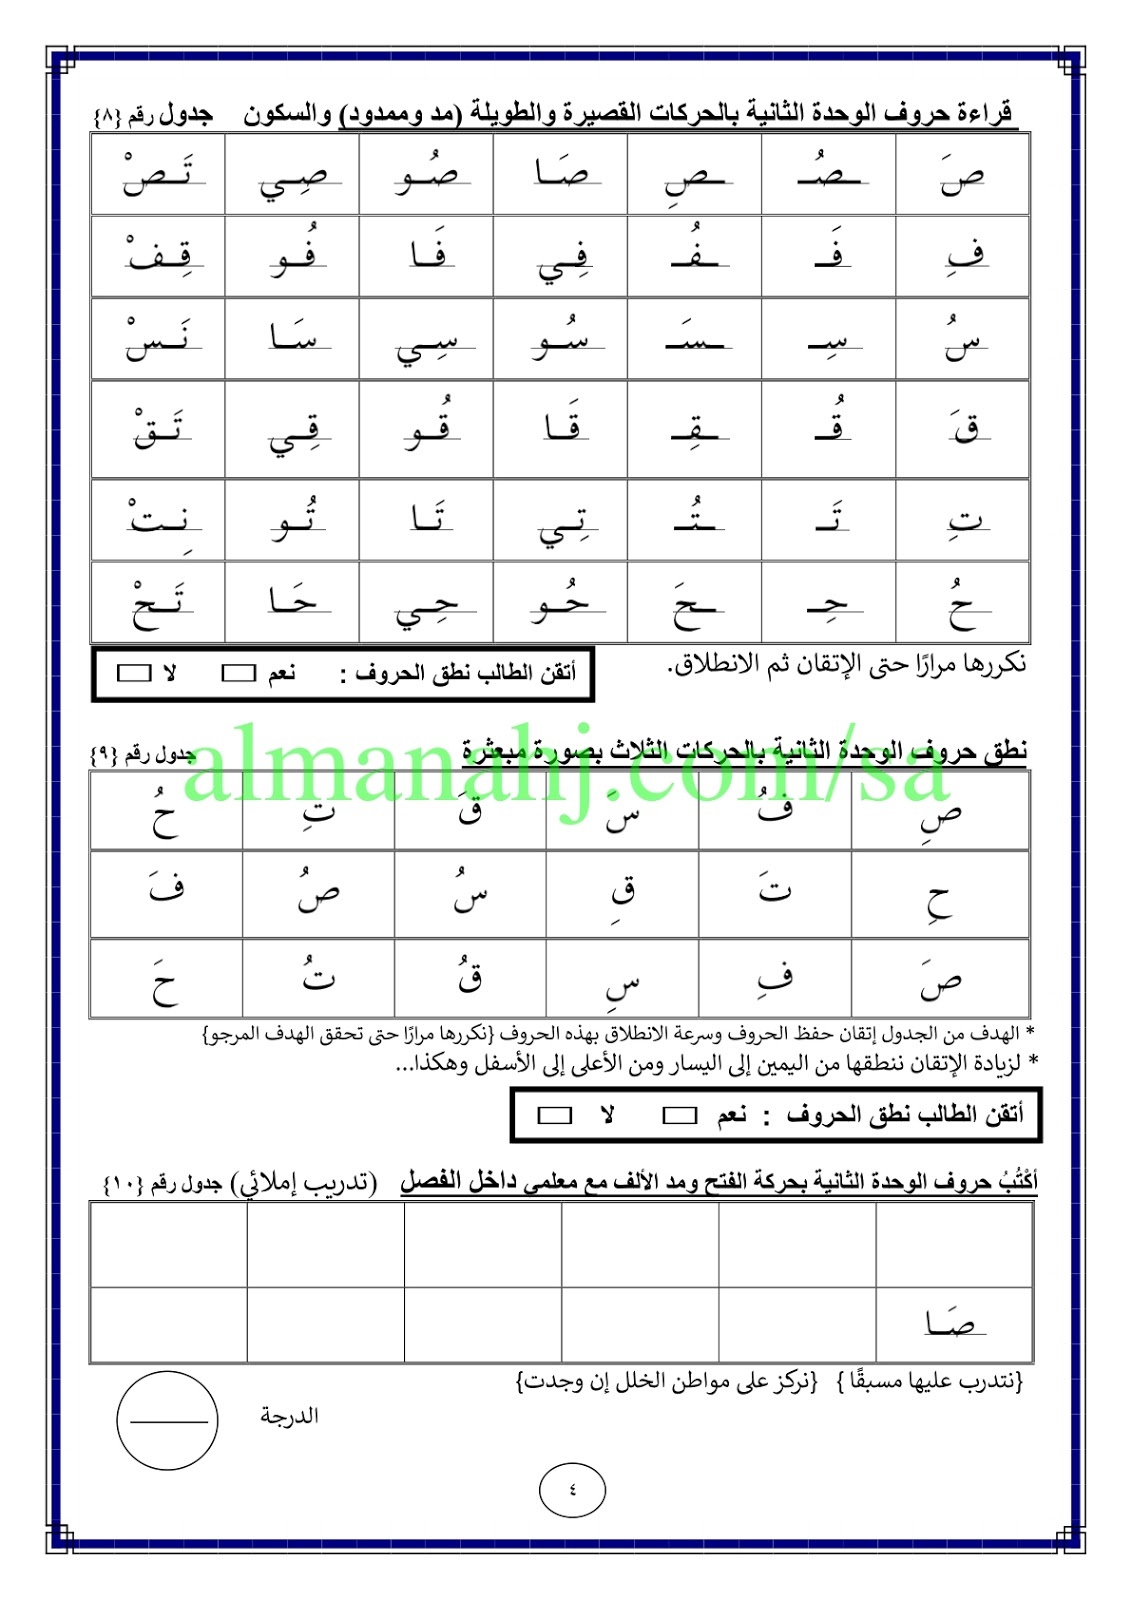 قراءة حروف الوحدة الثانية بالحركات القصيرة والطويلة (مد وممدود) والسكون جدول رقم {٨}
صَ ـصُـ ـصِ صَـا صُـو صِـي تَـصْ
فِ فَـ ـفُـ فِـي فَـا فُـو قِـفْ
سُ سِـ ـسَـ سُـو سِـي سَـا نَـسْ
قَ قُـ ـقِـ قَـا قُـو قِـي تَـقْ
تِ تَـ ـتُـ تِـي تَـا تُـو نِـتْ
حُ حِـ ـحَ حُـو حِـي حَـا تَـحْ
نكررها مرارًا حتى الإتقان ثم الانطلاق.
أتقن الطالب نطق الحروف : نعم لا
نطق حروف الوحدة الثانية بالحركات الثلاث بصورة مبعثرة جدول رقم {٩}
almanahj.com/sa
صِ فُ سَ قَ تِ حُ
حِ تَ قِ سُ صُ فَ
صَ فِ سِ قُ تُ حَ
* الهدف من الجدول إتقان حفظ الحروف وسرعة الانطلاق بهذه الحروف {نكررها مرارًا حتى تحقق الهدف المرجو}
* لزيادة الإتقان ننطقها من اليمين إلى اليسار ومن الأعلى إلى الأسفل وهكذا...
أتقن الطالب نطق الحروف : نعم لا
أكْتُبُ حروف الوحدة الثانية بحركة الفتح ومد الألف مع معلمي داخل الفصل (تدريب إملائي) جدول رقم {١٠}
صَـا
{نتدرب عليها مسبقًا } {نركز على مواطن الخلل إن وجدت}
الدرجة
٤